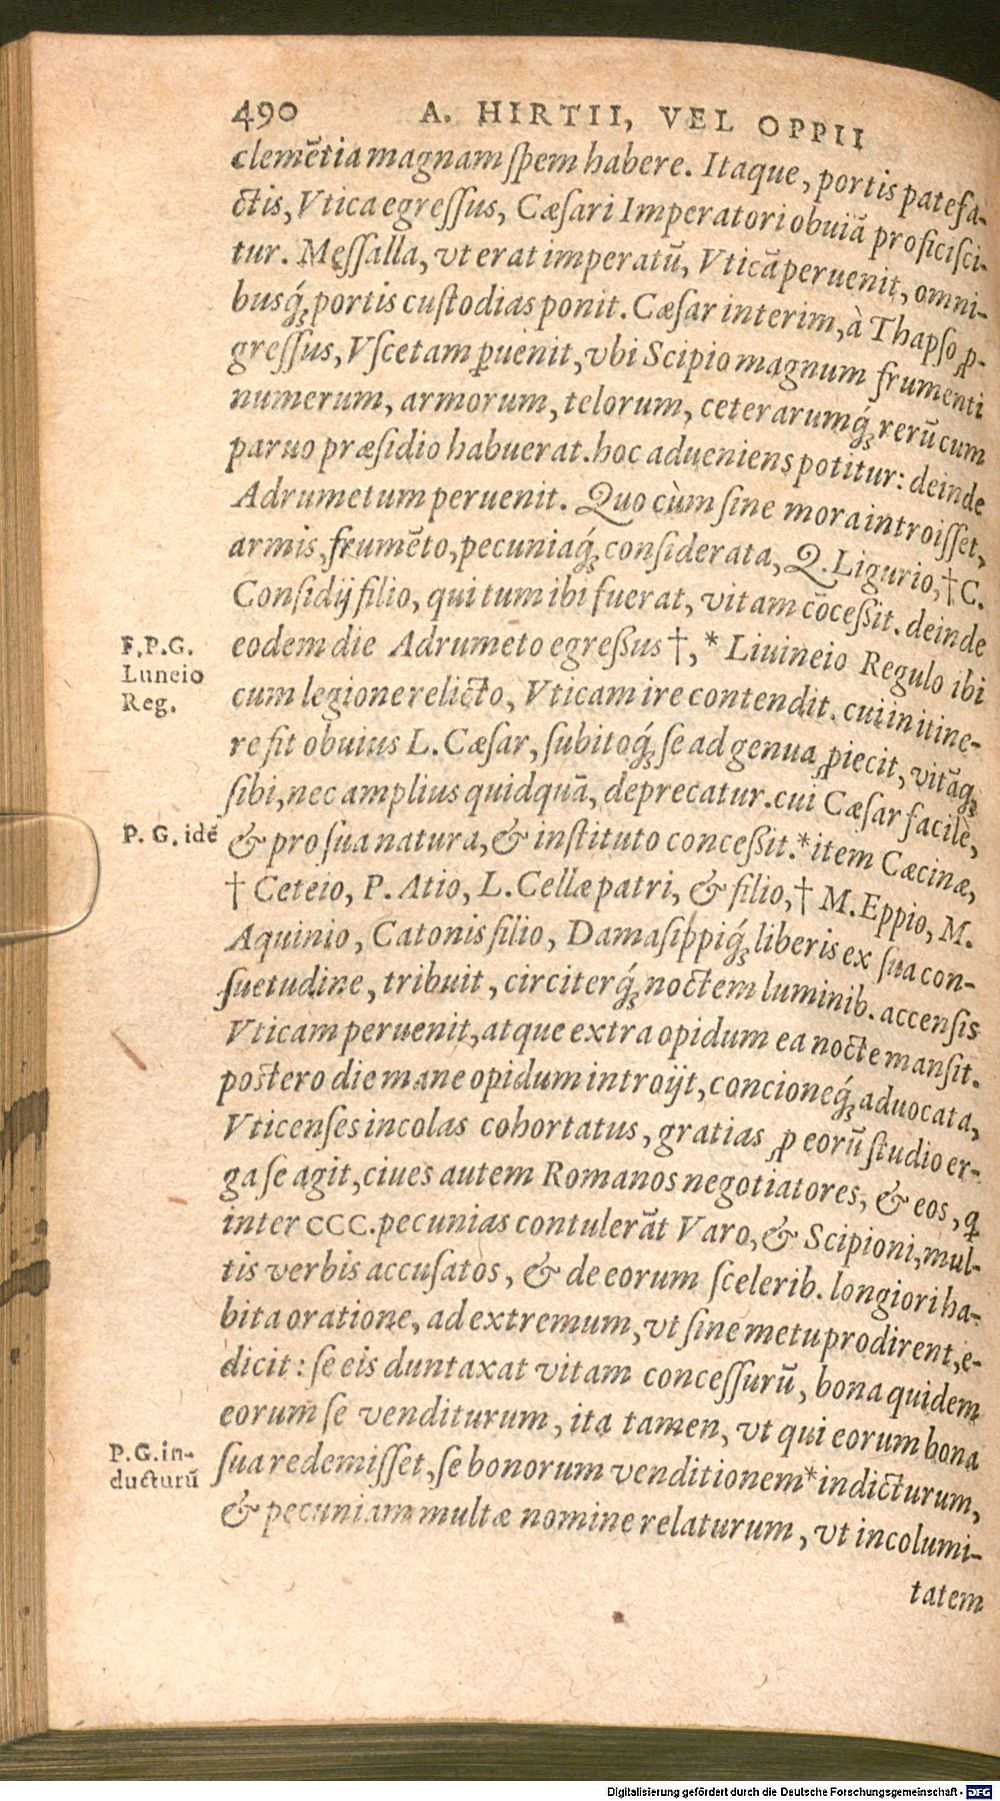 490 A. HIRTII, VEL OPPII
clemẽtia magnam ſpem habere. Itaque, portis patefa-
ctis, Vtica egreſſus, Cæſari Imperatori obuiã proficiſci-
tur. Meſſalla, vt erat imperatũ, Vticã peruenit, omni-
busq́; portis cuſtodias ponit. Cæſar interim, à Thapſo ꝓ-
greſſus, Vſcetam ꝑuenit, vbi Scipio magnum frumenti
numerum, armorum, telorum, ceterarumq́; rerũ cum
paruo præſidio habuerat. hoc adueniens potitur: deinde
Adrumetum peruenit. Quo cùm ſine mora introiſſet,
armis, frumẽto, pecuniaq́; conſiderata, Q. Ligurio, † C.
Conſidij filio, qui tum ibi fuerat, vitam cõceßit. deinde
eodem die Adrumeto egreßus †, * Liuineio Regulo ibi
F.P.G.
Luneio
Reg.
cum legione relicto, Vticam ire contendit. cui in itine-
re fit obuius L. Cæſar, ſubitoq́; ſe ad genua ꝓiecit, vitãq;
ſibi, nec amplius quidquã, deprecatur. cui Cæſar facilè,
& pro ſua natura, & inſtituto conceßit. * item Cæcinæ,
P. G. idẽ
† Ceteio, P. Atio, L. Cellæ patri, & filio, † M. Eppio, M.
Aquinio, Catonis filio, Damaſippiq́; liberis ex ſua con-
ſuetudine, tribuit, circiterq́; noctem luminib. accenſis
Vticam peruenit, atque extra opidum ea nocte manſit.
postero die mane opidum introijt, concioneq́; aduocata,
Vticenſes incolas cohortatus, gratias ꝓ eorũ ſtudio er-
ga ſe agit, ciues autem Romanos negotiatores, & eos, ꝗ
inter CCC. pecunias contulerãt Varo, & Scipioni, mul-
tis verbis accuſatos, & de eorum ſcelerib. longiori ha-
bita oratione, ad extremum, vt ſine metu prodirent, e-
dicit: ſe eis duntaxat vitam conceſſurũ, bona quidem
eorum ſe venditurum, ita tamen, vt qui eorum bona
ſua redemiſſet, ſe bonorum venditionem * indicturum,
P.G. in-
ducturũ
& pecuniam multæ nomine relaturum, vt incolumi-
tatem
Digitalisierung gefördert durch die Deutsche Forschungsgemeinschaft - DFG